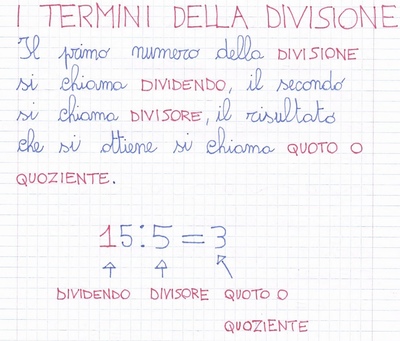 I TERMINI DELLA DIVISIONE
Il primo numero della DIVISIONE
si chiama DIVIDENDO, il secondo
si chiama DIVISORE, il risultato
che si ottiene si chiama QUOTO O
QUOZIENTE.
15:5=3
DIVIDENDO DIVISORE QUOTO O
QUOZIENTE